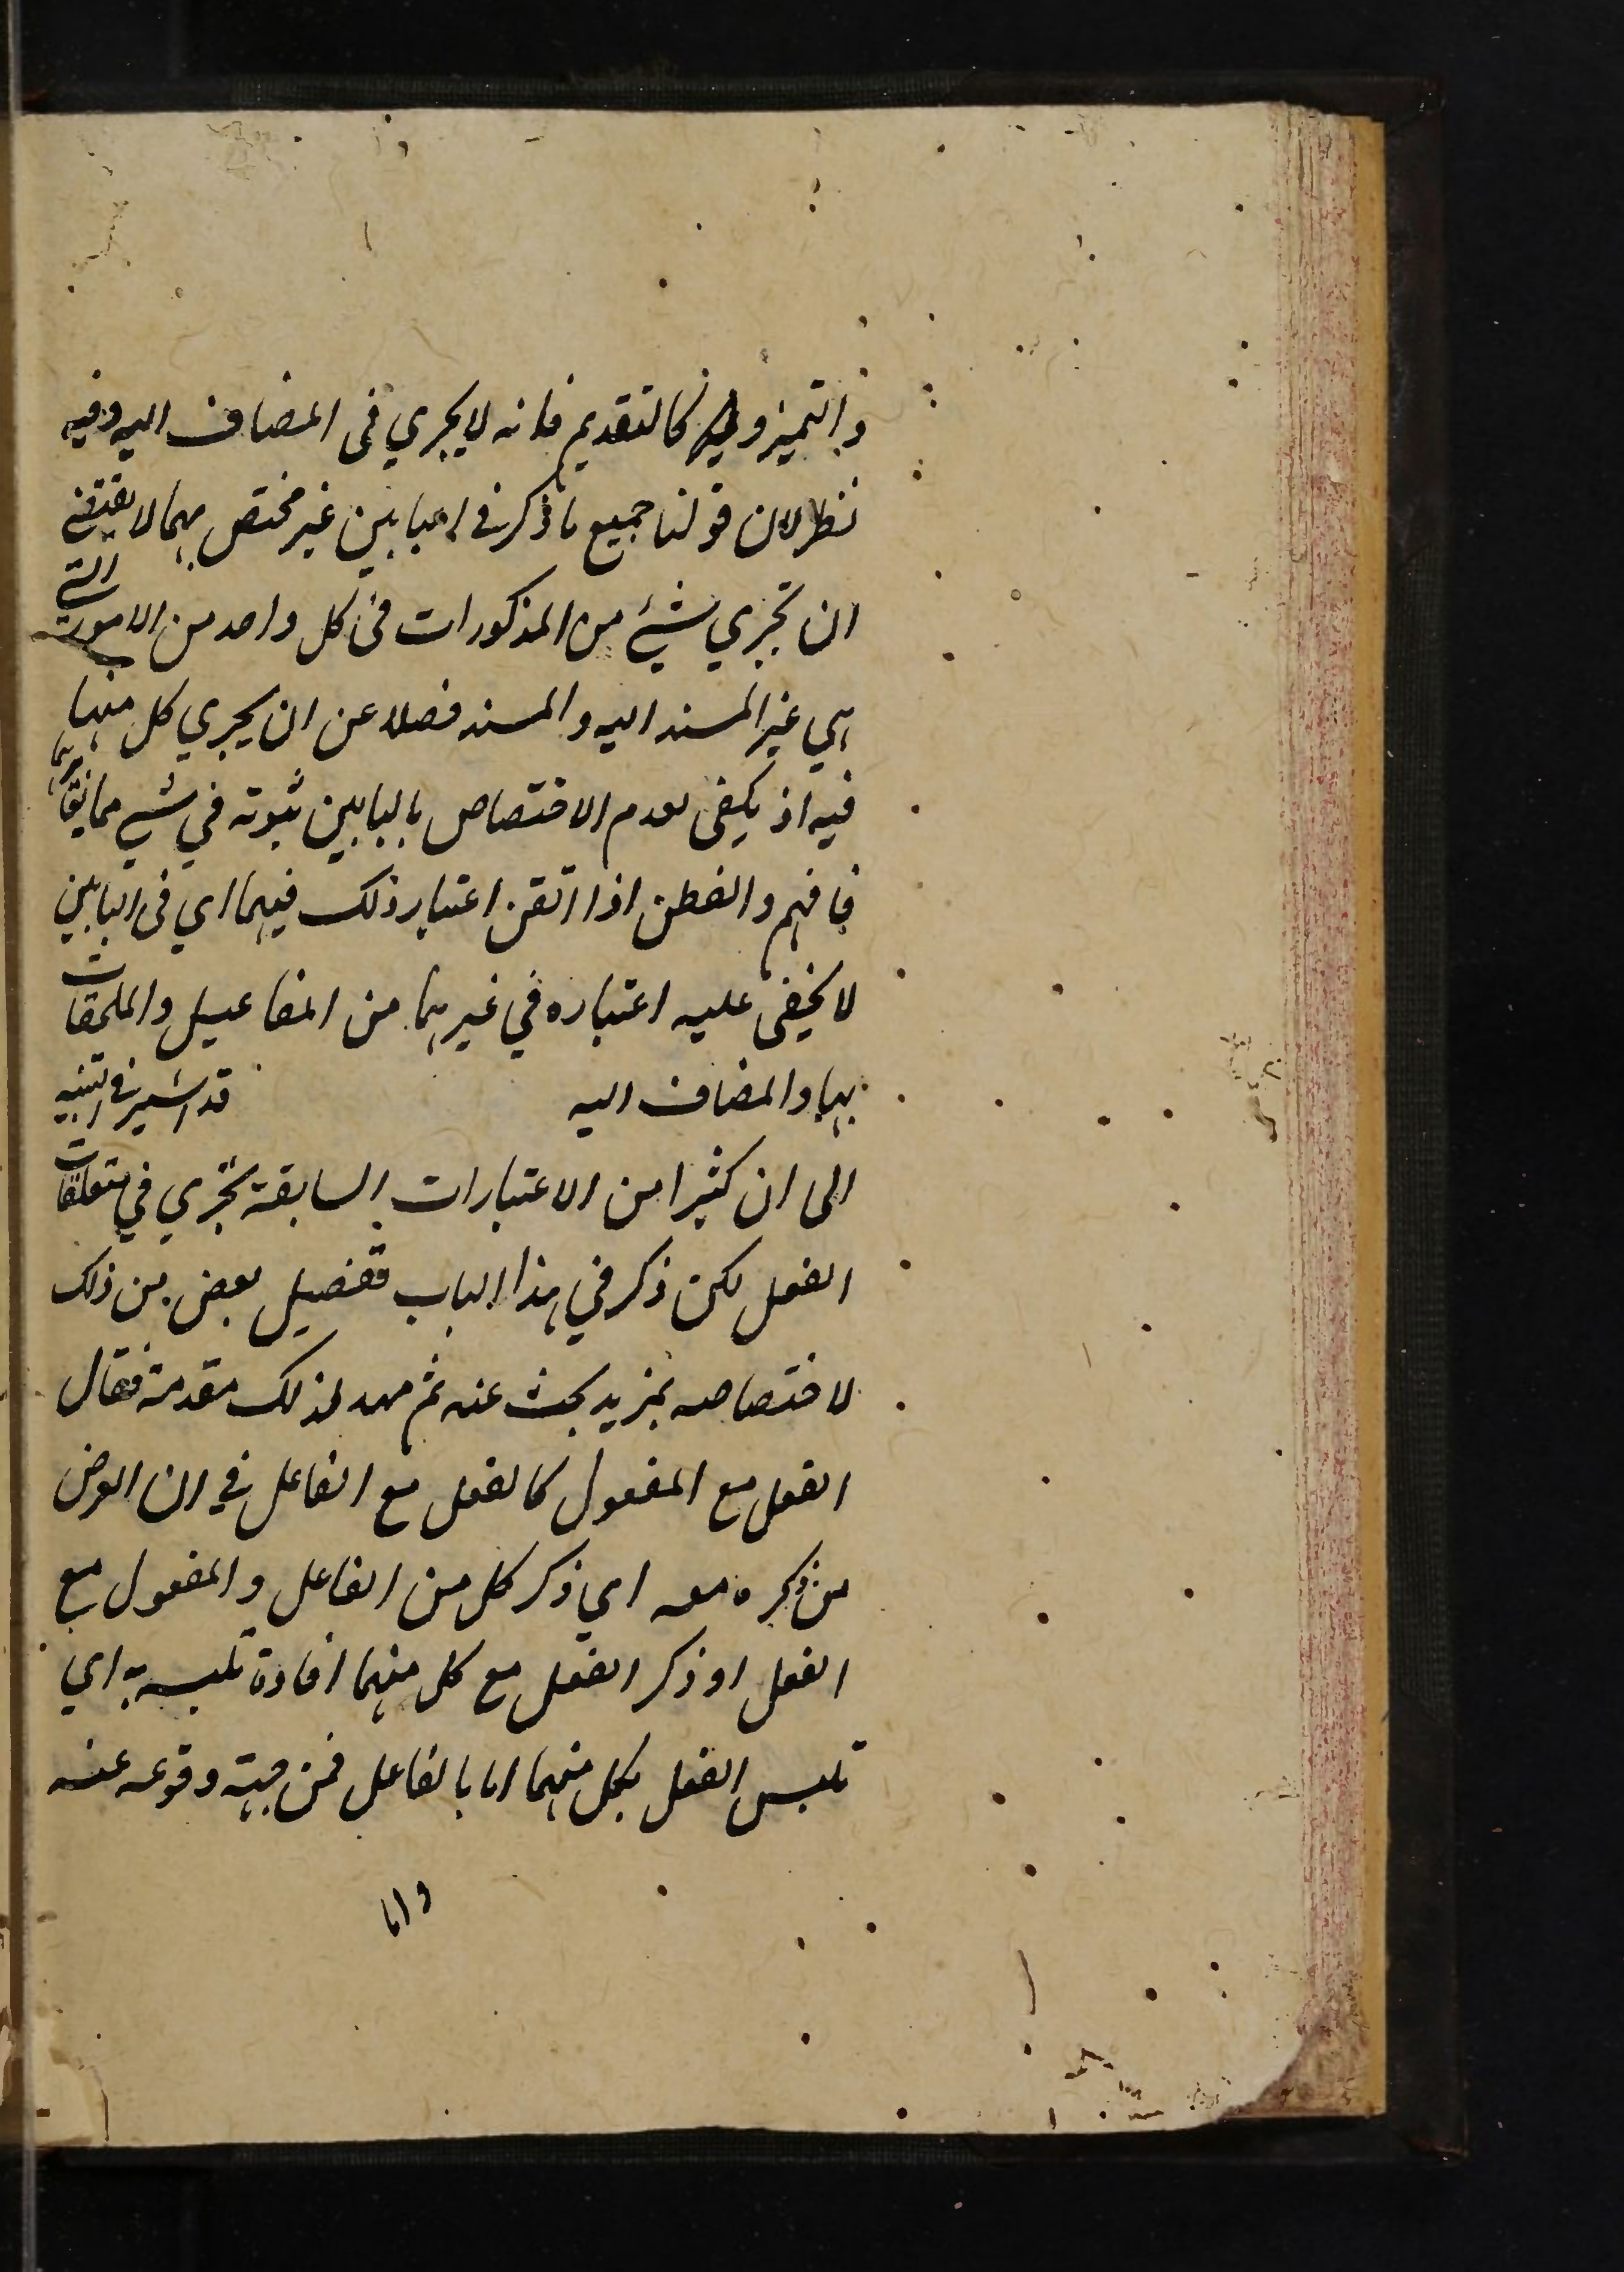 والتميز و كالتقديم فانه لا يجري فى المضاف اليه وفيه
نظر لان قولنا جميع ما ذكر في البابين غير مختص بهما لا يقتضي
ان تجري شيئ من المذكورات فى كل واحد من الامور التي
هي غير المسند اليه والمسند فضلا عن ان يجري كل منها
فيه اذ يكفى لعدم الاختصاص بالبابين ثبوته في شيئ مما يغايرهما
فافهم والفطن اذا اتقن اعتبار ذلك فيهما اي فى البابين
لا يخفى عليه اعتباره في غيرهما من المفاعيل والملحقات
بها والمضاف اليه قد اشير في التنبيه
الى ان كثيرا من الاعتبارات السابقة تجري في متعلقات
الفعل لكن ذكر في هذا الباب تفصيل بعض من ذلك
لاختصاصه بمزيد بحث عنه ثم مهد لذلك مقدمة فقال
الفعل مع المفعول كالفعل مع الفاعل في ان الغرض
من ذكره معه اي ذكر كل من الفاعل والمفعول مع
الفعل او ذكر الفعل مع كل منهما افادة تلبسه به اي
تلبس الفعل بكل منهما اما بالفاعل فمن جهة وقوعه عنه
واما